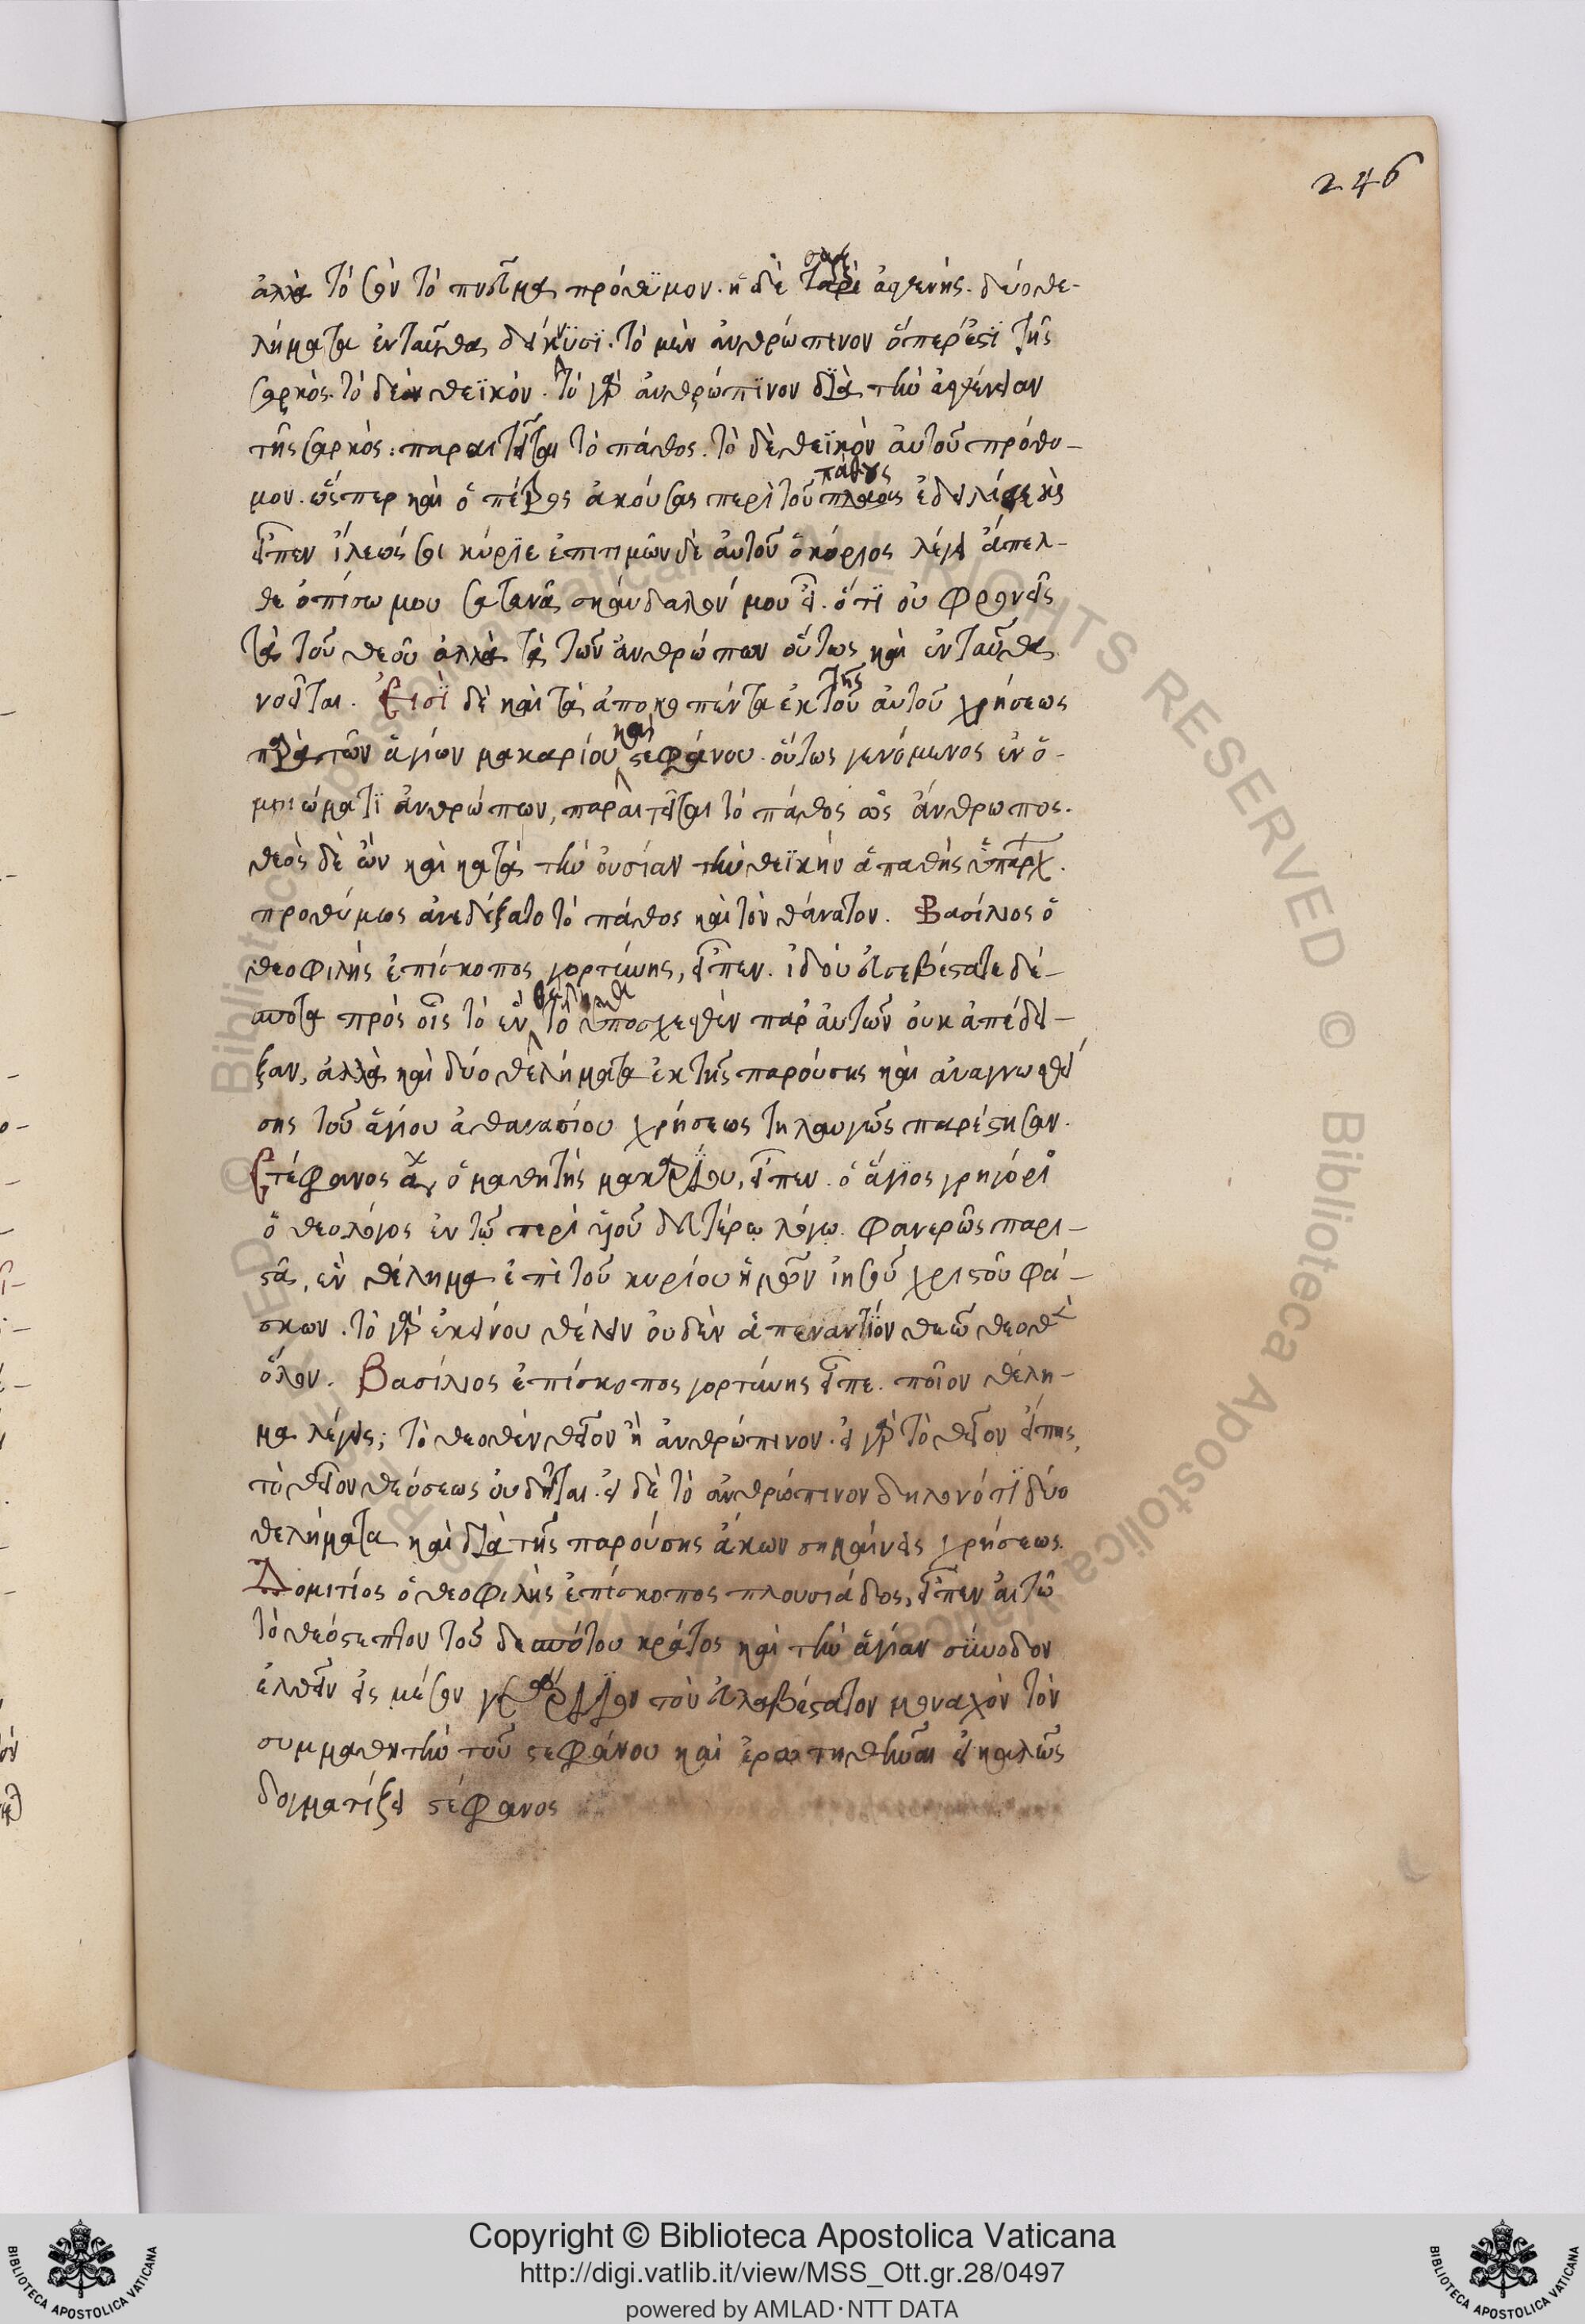 246
ἀλλὰ τὸ σὸν τὸ πνεῦμα πρόθϋμον. ἡ δὲ σὰρξ ἀσθενής. δύο θε-
λήματα ἐνταῦθα δείκνϋσϊ. τὸ μὲν ἀνθρώπινον ὅπερ ἐστϊ τῆς
σαρκὸς. τὸ δε θεϊκὸν. τὸ γὰρ ἀνθρώπϊνον δϊὰ τὴν ἀσθένειαν
τῆς σαρκὸς: παραιτεῖται τὸ πάθος. τὸ δὲ θεϊκὸν ἀυτοῦ πρόθυ-
μον. ὥσπερ καὶ ὁ πέτρος ἀκούσας περὶ τοῦ πάθους ἐδειλίασε καὶ
εἶπεν ἵλεώς σοι κύρϊε ἐπιτιμῶν δὲ ἀυτοῦ ὁ κύριος λέγει ἄπελ-
θε ὀπίσω μου σατανᾶ, σκάνδαλόν μου εἶ. ὅτϊ οὐ φρονεῖς
τὰ τοῦ θεοῦ ἀλλὰ τὰ τῶν ἀνθρώπων οὕτως καὶ ἐνταῦθα
νοεῖται. Εἰσϊ δὲ καὶ τὰ ἀποκοπέντα ἐκ τῆς ἀυτοῦ χρήσεως
παρὰ τῶν ἁγίων μακαρίου καὶ στεφάνου. οὕτως γενόμενος ἐν ὁ-
μοιώματϊ ἀνθρώπων, παραιτεῖται τὸ πάθος ὡς ἄνθρωπος.
θεὸς δὲ ὢν καὶ κατὰ τὴν ὀυσίαν τὴν θεϊκὴν ἀπαθὴς ὑπάρχ.
προθύμως ἀνεδέξατο τὸ πάθος καὶ τὸν θάνατον. Βασίλειος ὁ
θεοφιλὴς ἐπίσκοπος γορτύνης, εἶπεν. ἰδοὺ ἐυσεβέστατε δέ-
σποτα πρὸς οἷς τὸ ἓν θέλημα τὸ ὑποσχεθὲν παρ ἀυτῶν ὀυκ ἀπέδει-
ξαν, ἀλλὰ καὶ δύο θελήματα ἐκ τῆς παρούσης καὶ ἀναγνωσθεί
σης τοῦ ἁγίου ἀθανασίου χρήσεως τηλαυγῶς παρέστησαν.
Στέφανος ὁ μαθητὴς μακαρίου, εἶπεν. ὁ ἅγϊος γρηγόρϊ
ὁ θεολόγος ἐν τῷ περὶ ὑιοῦ δευτέρῳ λόγω. φανερῶς παρι-
στᾶ, ἓν θέλημα ἐπὶ τοῦ κυρίου ἡμῶν ἰησοῦ χριστοῦ φά-
σκων. τὸ γὰρ ἐκείνου θέλειν ὀυδὲν ἀπεναντϊόν θεῶ θεωθὲ
ὅλον. Βασίλειος ἐπίσκοπος γορτύνης εἶπε. ποῖον θέλη-
μα λέγεις; τὸ θεωθὲν θεῖον ἢ ἀνθρώπινον. εἰ γὰρ τὸ θεῖον εἴπης,
τὸ θεῖον θεώσεως ὀυ δεῖται. εἰ δὲ τὸ ἀνθρώπινον δηλονότϊ δύο
θελήματα καὶ διὰ τῆς παρούσης ἄκων σημαίνεις χρήσεως.
Δομιτίος ὁ θεοφιλὴς ἐπίσκοπος πλουσιάδος, εἶπεν ἀιτῶ
τὸ θεόστεπτον τοῦ δεσπότου κράτος καὶ τὴν ἁγίαν σύνοδον
ἐλθεῖν εἰς μέσον τὸν ἐυλαβέστατον μοναχὸν τὸν
συμμαθητὴν τοῦ στεφάνου καὶ ἐρωτηθῆναι εἰ καλῶς
δογματίζει στέφανος
Copyright © Biblioteca Apostolica Vaticana
http://digi.vatlib.it/view/MSS_Ott.gr.28/0497
powered by AMLAD·NTT DATA